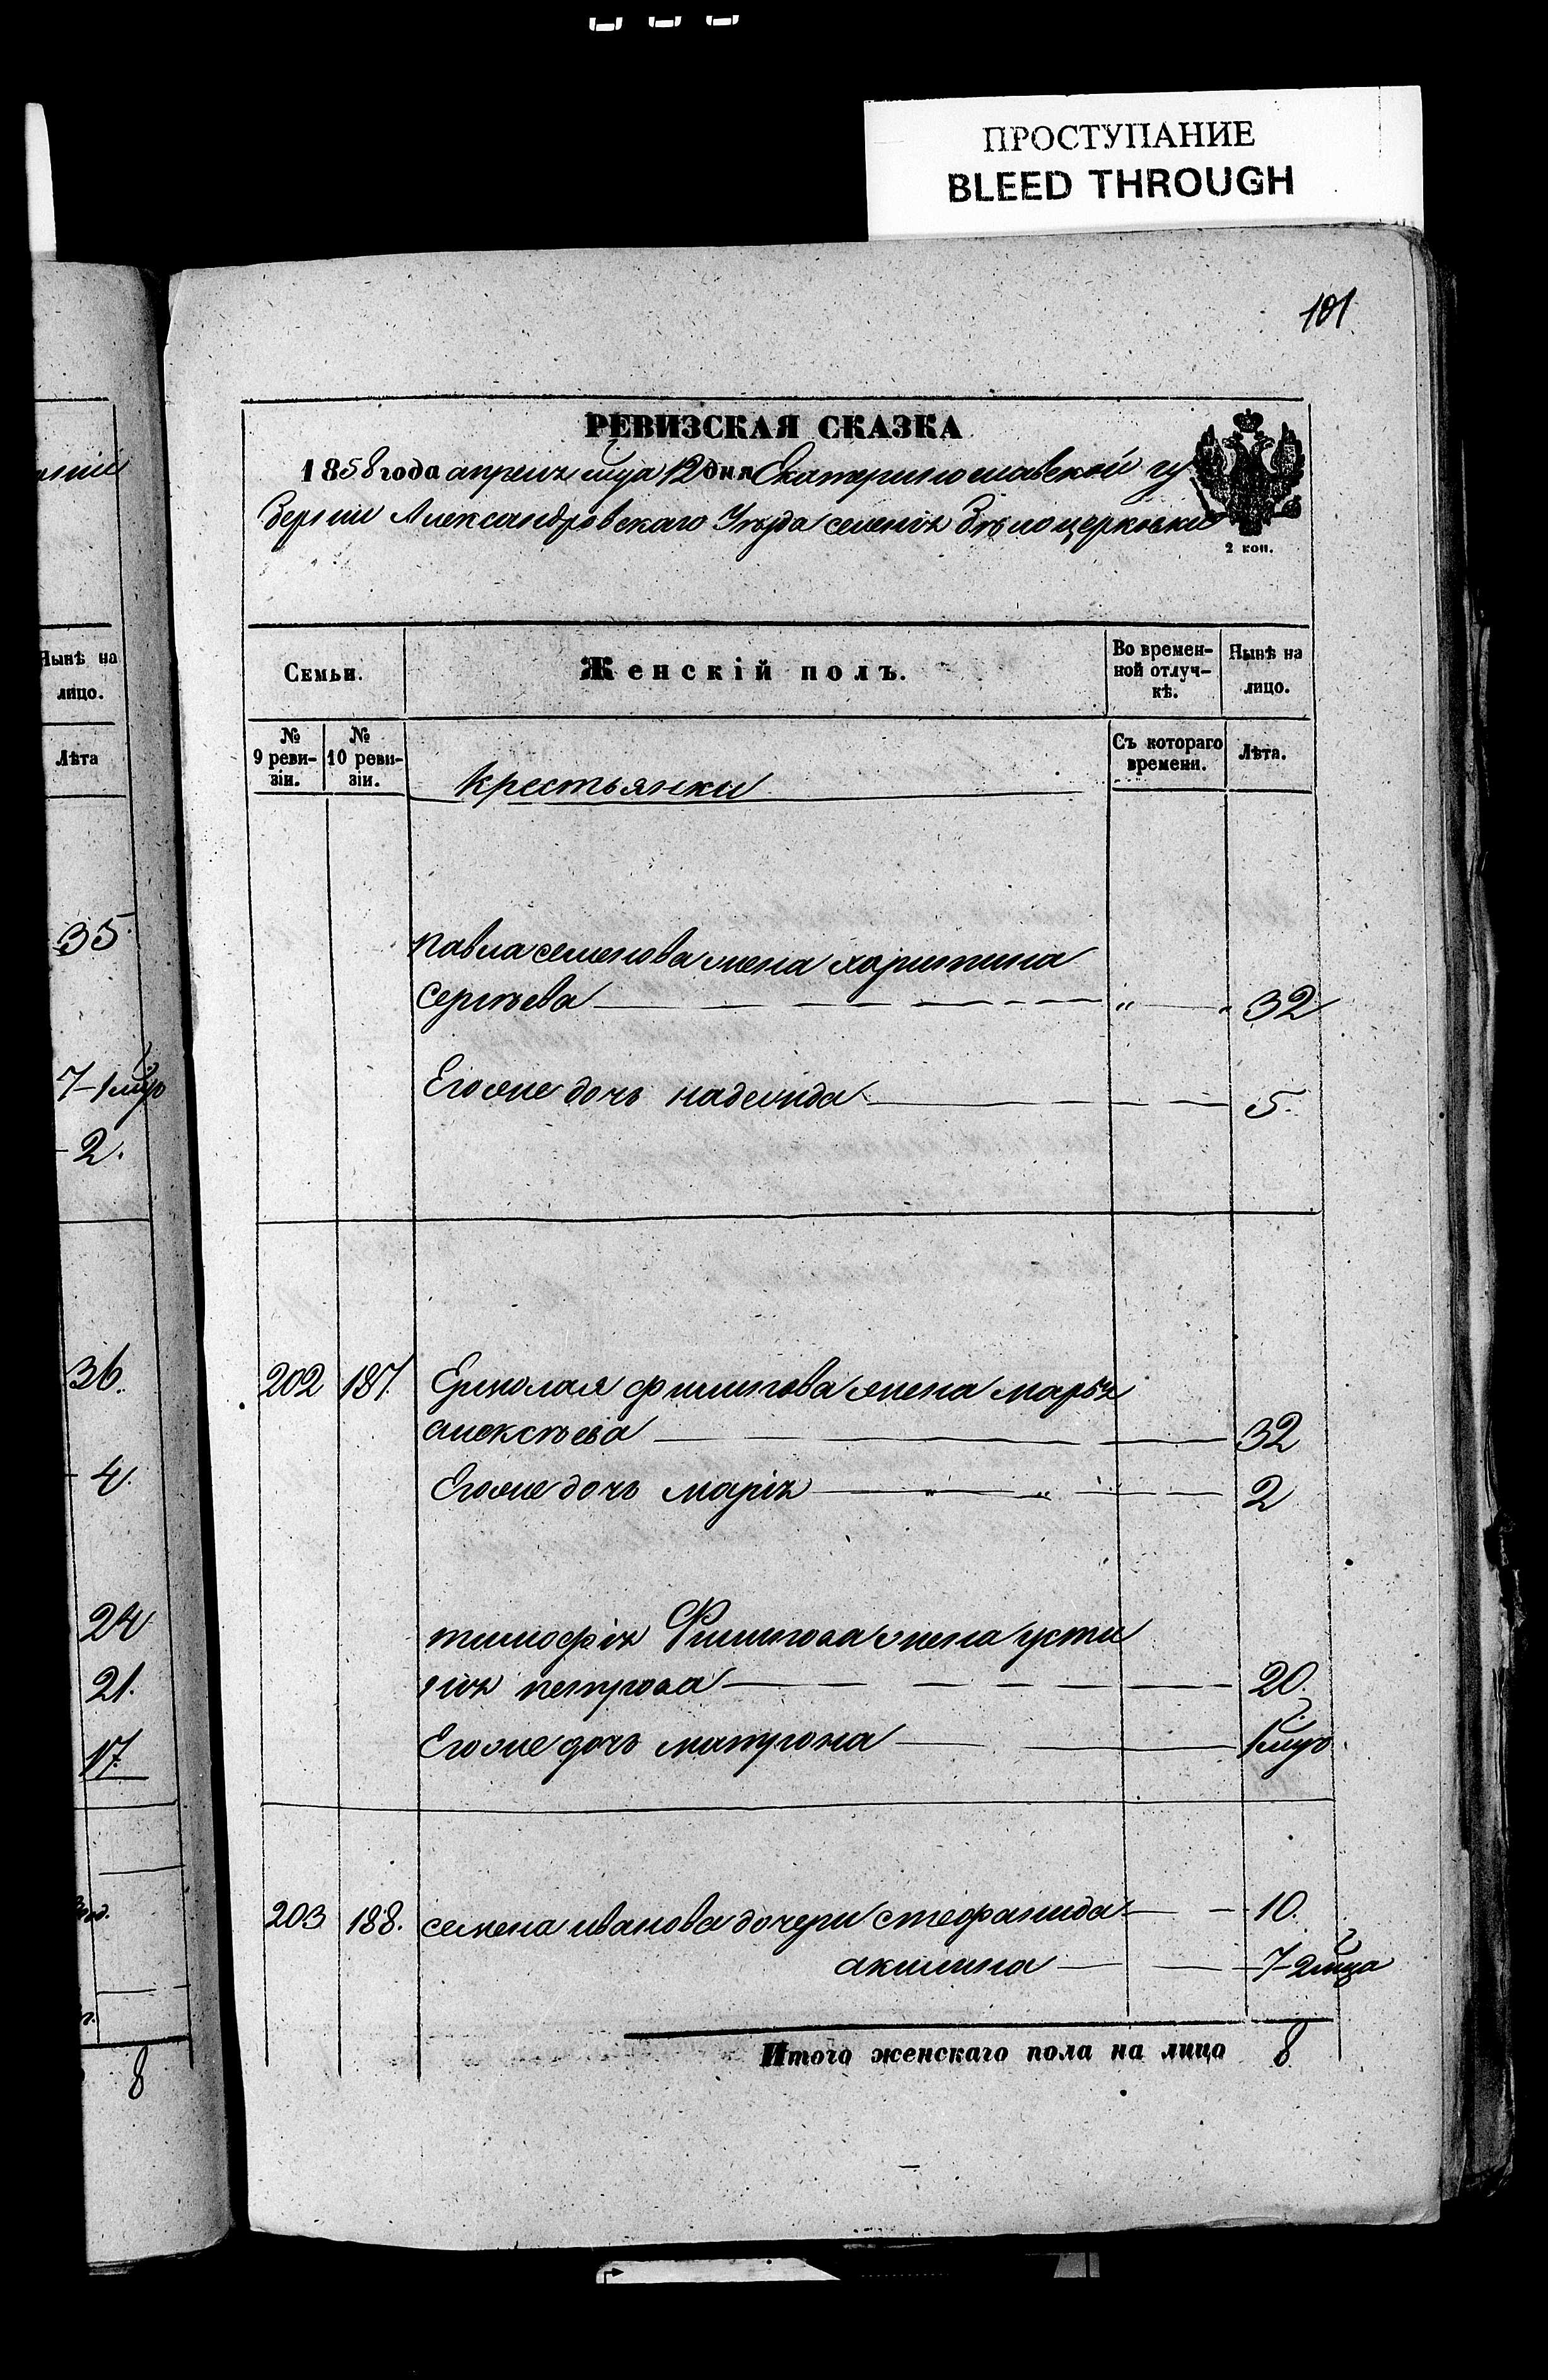 ПРОСТУПАНИЕ
BLEED THROUGH
101
РЕВИЗСКАЯ СКАЗКА
1858 года апреля мца 12 дня Екатеринославской гу
берніи Александровскаго Уезда селенія Бѣлоцерковки
2 коп.
Семьи. Женскій полъ. Во времен-ной отлуч-кѣ. Нынѣ на лицо.
№ 9 реви-зіи. № 10 реви-зіи. Крестьянки Съ котораго времени. Лѣта.
Павла семенова жена харитина
Сергѣева 32
Егоже дочь надежда 5.
202 187. Ермолая филипова жена марья
алексѣева 32
Егоже дочь марія 2
тимофѣя Филипова жена усти
нія петрова 20.
Егоже дочь матрона 1 мцъ
203 188. семена иванова дочери стефанида 10.
акилина 7-2 мца
Итого женскаго пола на лицо 8
Нынѣ на
лицо.
Лѣта
35.
7-1 мцъ
2.
36.
4.
24
21.
17.
8